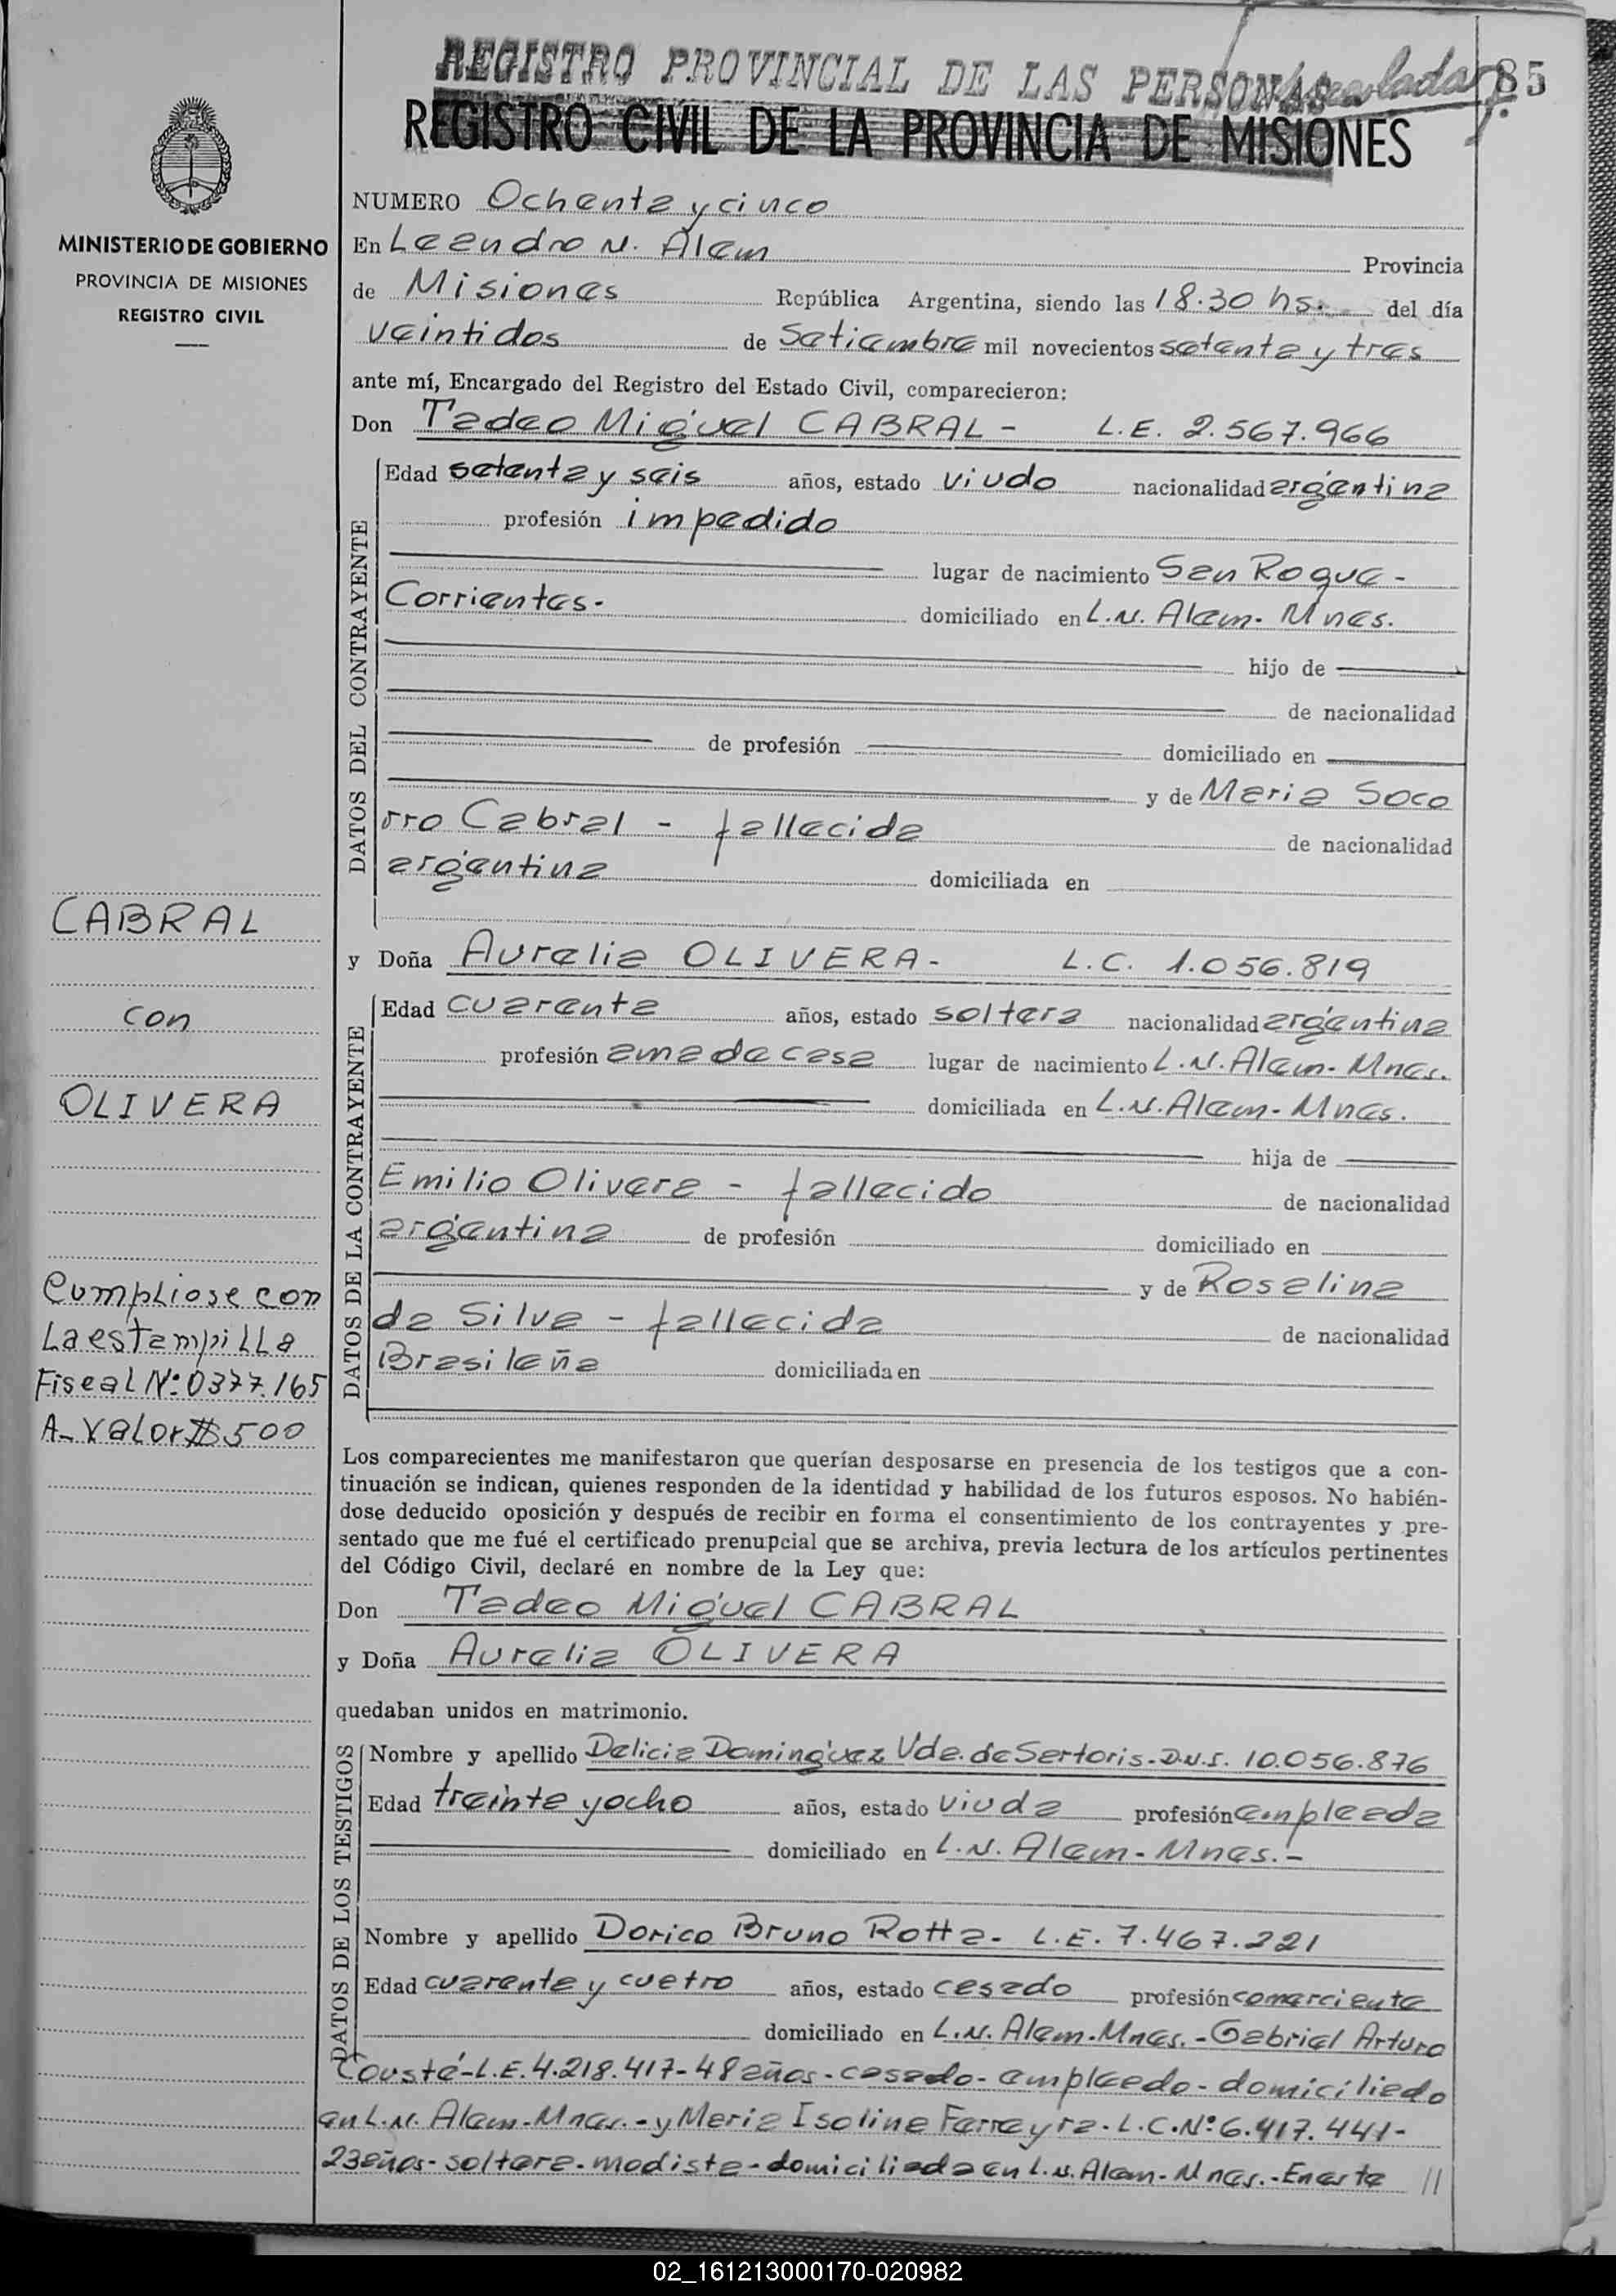 REGISTRO PROVINCIAL DE LAS PERSONAS
85
REGISTRO CIVIL DE LA PROVINCIA DE MISIONES
MINISTERIO DE GOBIERNO
PROVINCIA DE MISIONES
REGISTRO CIVIL
NUMERO Ochenta y cinco
En Leandro N. Alem Provincia
de Misiones República Argentina, siendo las 18.30 hs. del día
veintidos de Setiembre mil novecientos setenta y tres
ante mí, Encargado del Registro del Estado Civil, comparecieron:
Don Tadeo Miguel CABRAL - L.E. 2.567.966
DATOS DEL CONTRAYENTE
Edad setenta y seis años, estado viudo nacionalidad argentina
profesión impedido
lugar de nacimiento San Roque -
Corrientes. domiciliado en L.N. Alem. Mnes.
hijo de
de nacionalidad
de profesión domiciliado en
y de Maria Soco
rro Cabral - fallecida de nacionalidad
argentina domiciliada en
CABRAL
con
OLIVERA
y Doña Aurelia OLIVERA - L.C. 1.056.819
DATOS DE LA CONTRAYENTE
Edad cuarenta años, estado soltera nacionalidad argentina
profesión ama de casa lugar de nacimiento L.N. Alem - Mnes.
domiciliada en L.N. Alem - Mnes.
hija de
Emilio Olivera - fallecido de nacionalidad
argentina de profesión domiciliado en
y de Rosalina
da Silva - fallecida de nacionalidad
Brasileña domiciliada en
Cumpliose con
La estampilla
Fiscal Nº 0377.165
A- Valor $ 500
Los comparecientes me manifestaron que querían desposarse en presencia de los testigos que a con-
tinuación se indican, quienes responden de la identidad y habilidad de los futuros esposos. No habién-
dose deducido oposición y después de recibir en forma el consentimiento de los contrayentes y pre-
sentado que me fué el certificado prenupcial que se archiva, previa lectura de los artículos pertinentes
del Código Civil, declaré en nombre de la Ley que:
Don Tadeo Miguel CABRAL
y Doña Aurelia OLIVERA
quedaban unidos en matrimonio.
DATOS DE LOS TESTIGOS
Nombre y apellido Delicia Dominguez Vda. de Sertoris - D.N.I. 10.056.876
Edad treinta y ocho años, estado viuda profesión empleada
domiciliado en L.N. Alem - Mnes. -
Nombre y apellido Dorico Bruno Rotta - L.E. 7.467.221
Edad cuarenta y cuatro años, estado casado profesión comerciante
domiciliado en L.N. Alem - Mnes. - Gabriel Arturo
Cousté - L.E. 4.218.417 - 48 años - casado - empleado - domiciliado
en L.N. Alem - Mnes. - y Maria Isolina Ferreyra - L.C. Nº 6.417.441 -
23 años - soltera - modista - domiciliada en L.N. Alem - Mnes. - En este //
02_161213000170-020982